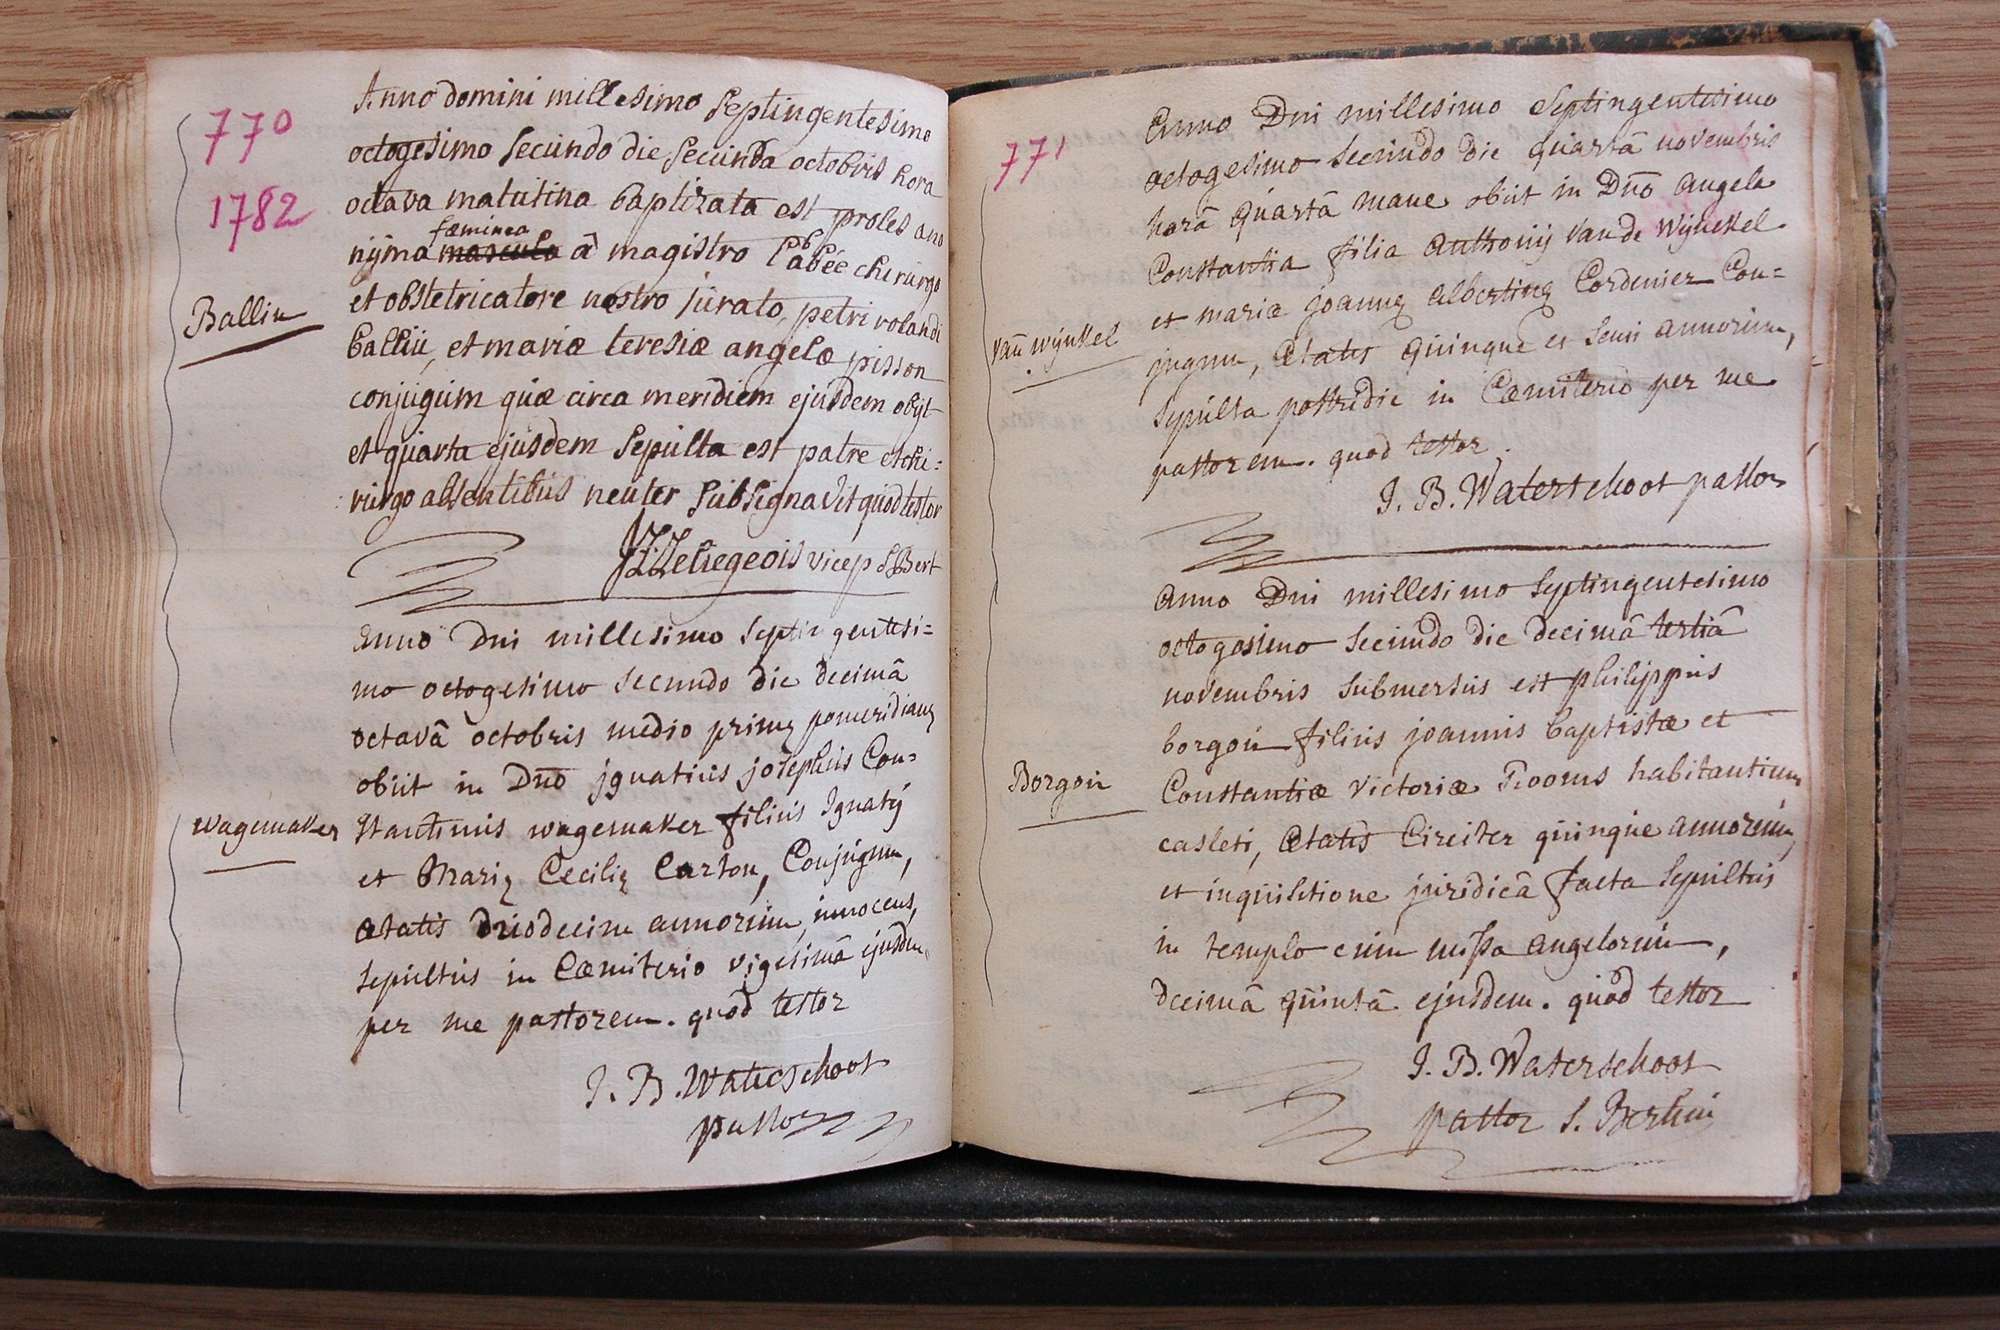 770
1782
Anno domini millesimo septingentesimo
octogesimo secundo die secunda octobris hora
octava matutina baptizata est proles ano
fœminea
nÿma mascula â magistro Labée chirurgo
et obstetricatore nostro jurato, petri rolandi
balliu, et mariæ teresiæ angelæ pisson
conjugum quæ circa meridiem ejusdem obijt
et quarta ejusdem sepulta est patre et chi=
rurgo absentibus neuter subsignavit, quod testor
Balliu
Leliegeois vicep S Bert
anno Dni millesimo septingentesi=
mo octogesimo secundo die decimâ
octavâ octobris medio primę pomeridianę
obiit in Dno jgnatius josephus Con=
stantinus wagemaker filius Ignatÿ
et Marię Cecilię Carton, Conjugum,
ætatis duodecim annorum, innocens,
sepultus in Cœmiterio vigesimâ ejusdem
per me pastorem. quod testor
wagemaker
J. B. Waterschoot
pastor
771
anno Dni millesimo septingentesimo
octogesimo secundo die quartâ novembris
horâ quartâ mane obiit in Dno angela
Constantia filia anthonij van de wÿnckel
et mariæ joannę albertinę Cordenier Con=
jugum, ætatis quinque et semi annorum,
sepulta postridie in Cœmiterio per me
pastorem. quod testor.
van wÿnkel
J. B. Waterschoot pastor
anno Dni millesimo septingentesimo
octogesimo secundo die decimâ tertiâ
novembris submersus est philippus
borgou filius joannis baptistæ et
Constantiæ victoriæ Rooms habitantium
casleti, ætatis Circiter quinque annorum,
et inquisitione juridicâ facta sepultus
in templo cum missa angelorum,
decimâ quintâ ejusdem. quod testor
Borgou
J. B. Waterschoot
pastor S. Bertini